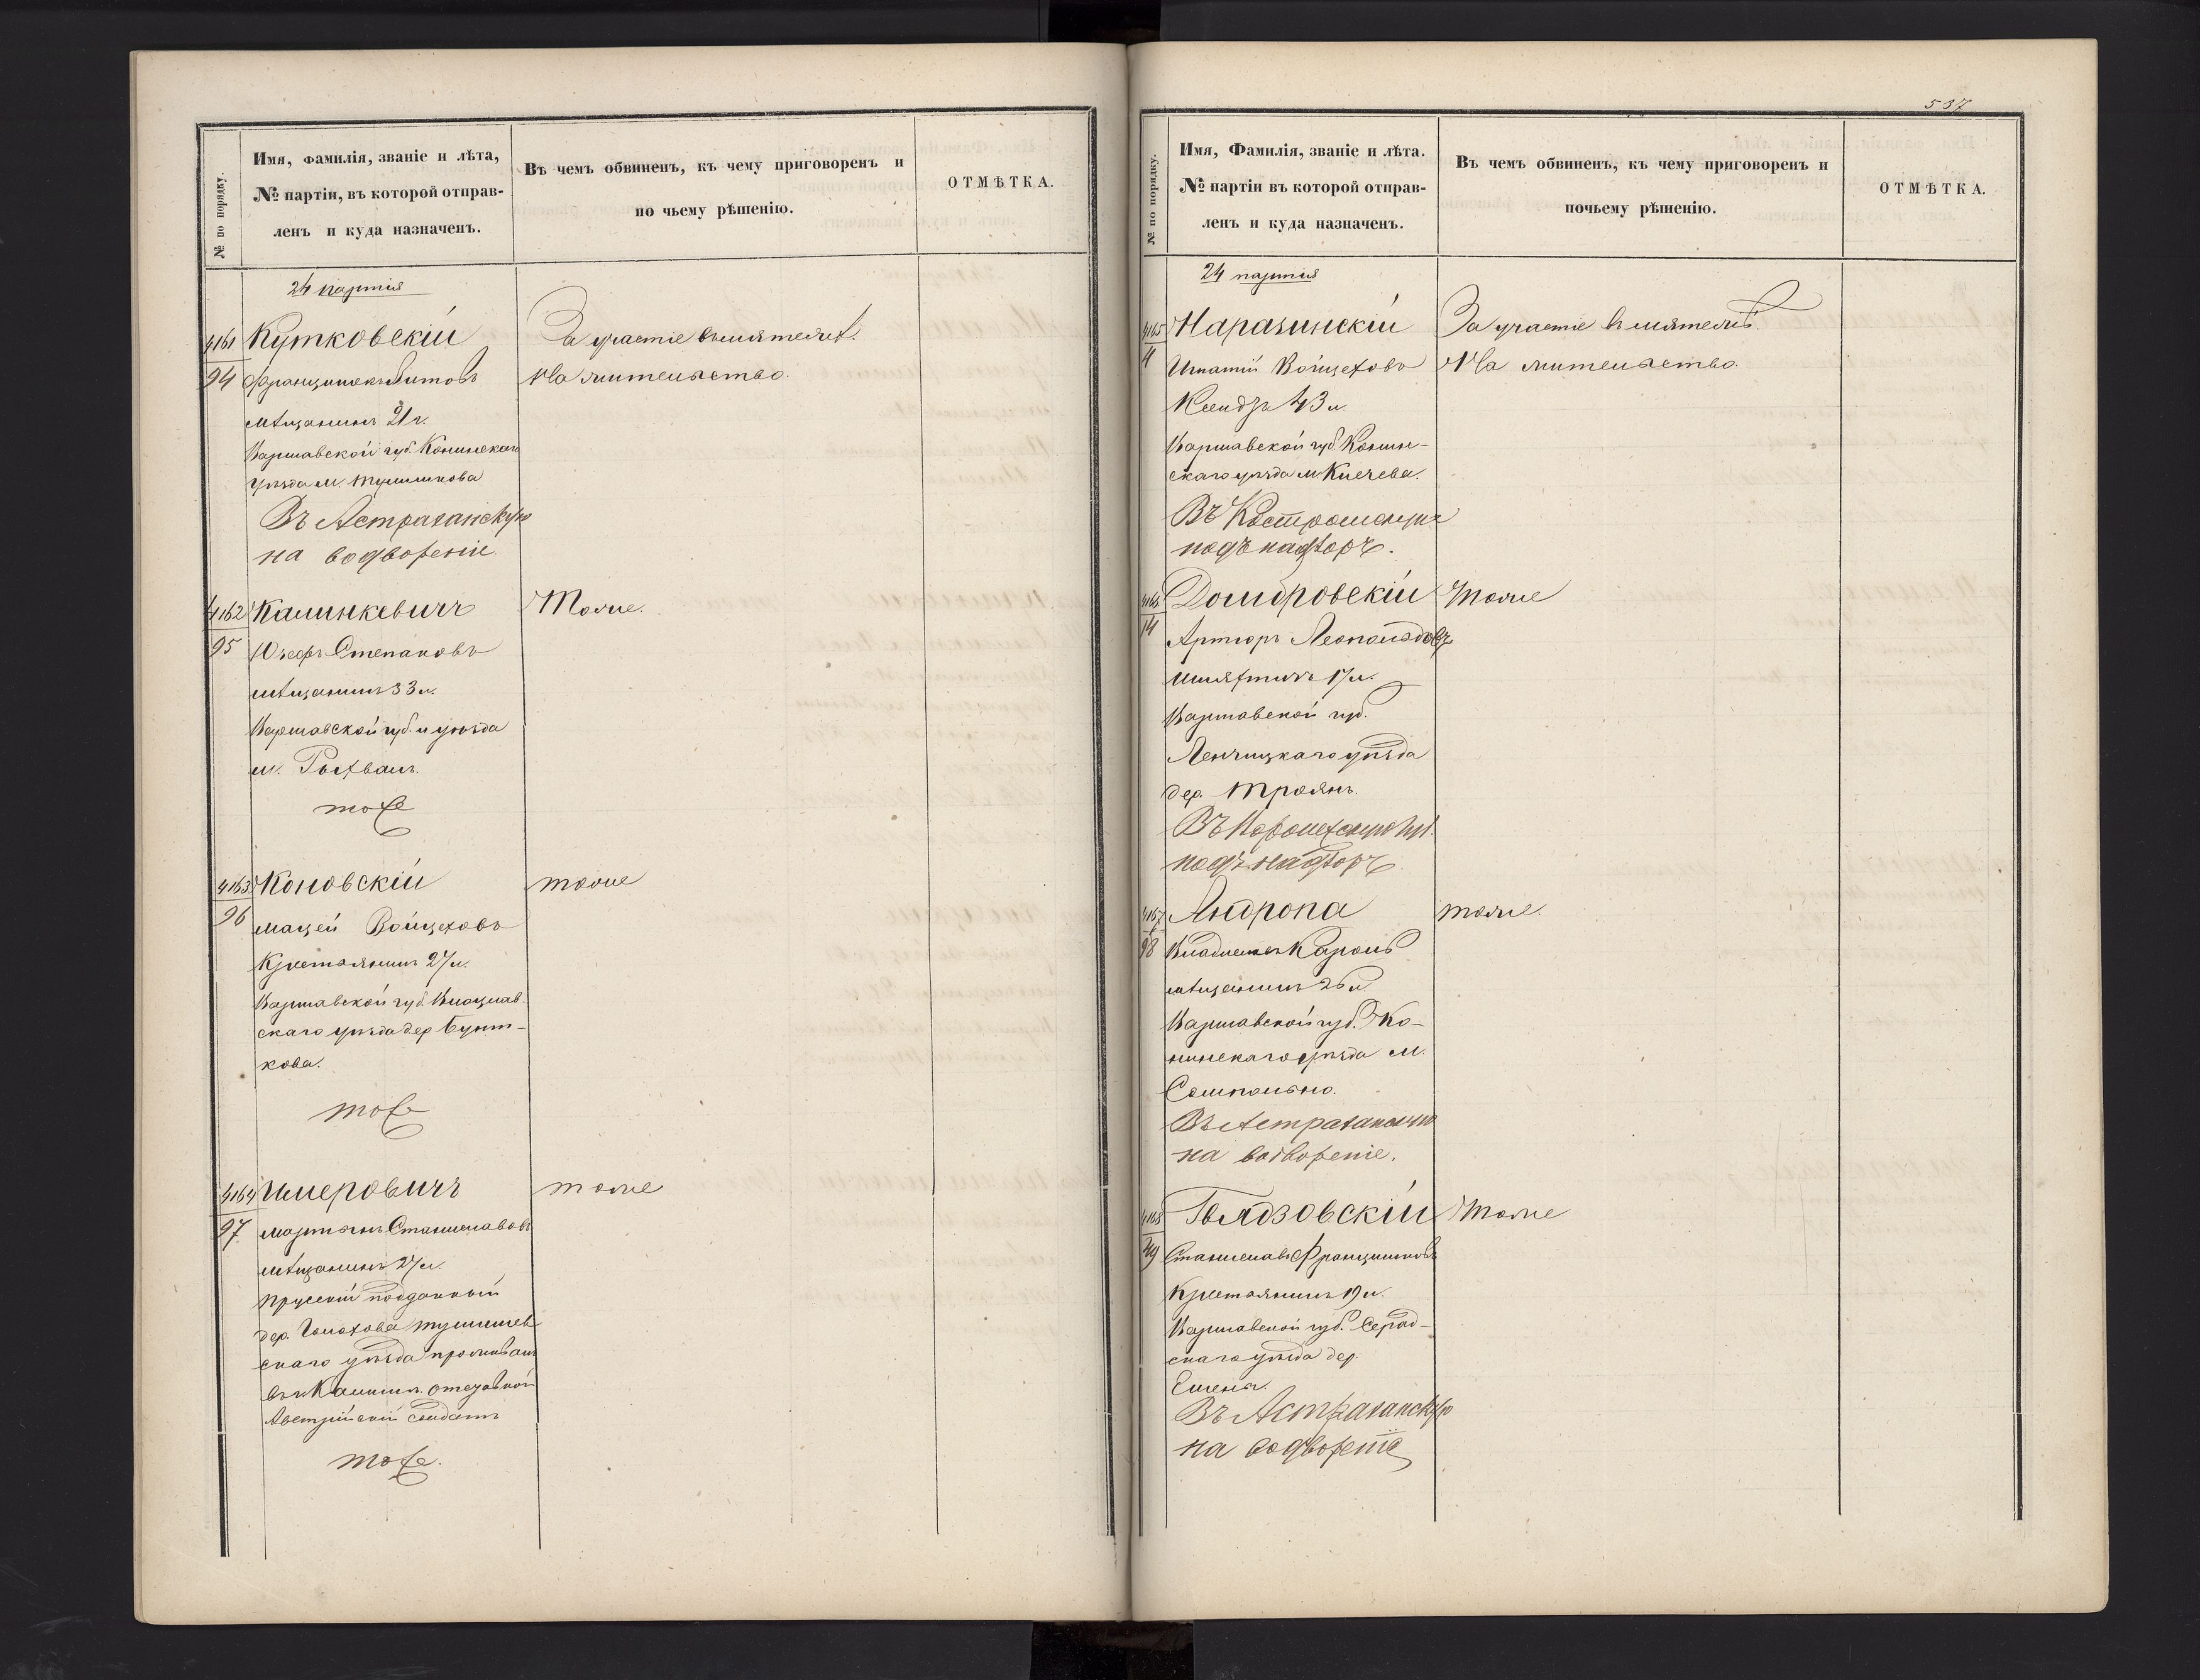 № по порядку.
Имя, фамилія, званіе и лѣта,
№ партіи, въ которой отправ-
ленъ и куда назначенъ.
Въ чемъ обвиненъ, къ чему приговоренъ и
по чьему рѣшенію.
ОТМѢТКА.
24 партія
4161
94
Кутковскій
Францишекъ Витовъ
мѣщанинъ 21 г.
Варшавской губ. Конинскаго
уѣзда м. Тулишкова
Въ Астраханскую
на водвореніе.
За участіе въ мятежѣ.
На жительство.
4162
95
Калинкевичъ
Юзефъ Степановъ
мѣщанинъ 33 л.
Варшавской губ. и уѣзда
м.
тоже
Тоже.
4163
96
Коновскій
Мацей Войцеховъ
Крестьянинъ 27 л.
Варшавской губ. Влоцлав-
скаго уѣзда дер
кова.
тоже
тоже
4164
97
Мартынъ Станиславовъ
мѣщанинъ 27 л.
Прусскій подданный
дер.
скаго уѣзда проживалъ
въ г. отставной
Австрійскій солдатъ
тоже.
тоже
537
№ по порядку.
Имя, Фамилія, званіе и лѣта.
№ партіи въ которой отправ-
ленъ и куда назначенъ.
Въ чемъ обвиненъ, къ чему приговоренъ и
почьему рѣшенію.
ОТМѢТКА.
24 партія
4165
4
Наразинскій
Игнатій Войцеховъ
Ксендзъ 43 л.
Варшавской губ. Конин-
скаго уѣзда м. Клечева.
Въ Костромскую
подъ надзоръ.
За участіе въ мятежѣ.
На жительство.
4166
14
Домбровскій
Артюръ Леопольдовъ
шляхтичъ 17 л.
Варшавской губ.
Ленчицкаго уѣзда
дер. Троянъ.
Въ Воронежскую губ.
подъ надзоръ
Тоже
4167
98
Андропа
Владиславъ
мѣщанинъ 26 л.
Варшавской губ. Ко-
нинскаго уѣзда м.
Сомпольно.
Въ Астраханскую
на водвореніе.
тоже.
4168
99
Гвяздовскій
Станиславъ Францишковъ
Крестьянинъ 19 л.
Варшавской губ. Серад-
скаго уѣзда дер.
Въ Астраханскую
на водвореніе
Тоже